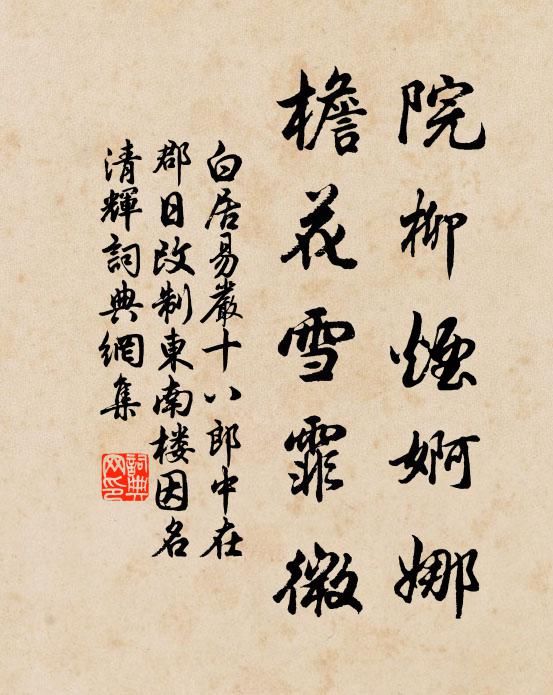 院柳煙婀娜
檐花雪霏微
白居易嚴十八郎中在
郡日改制東南楼因名
清輝詞典網集
詞典网印